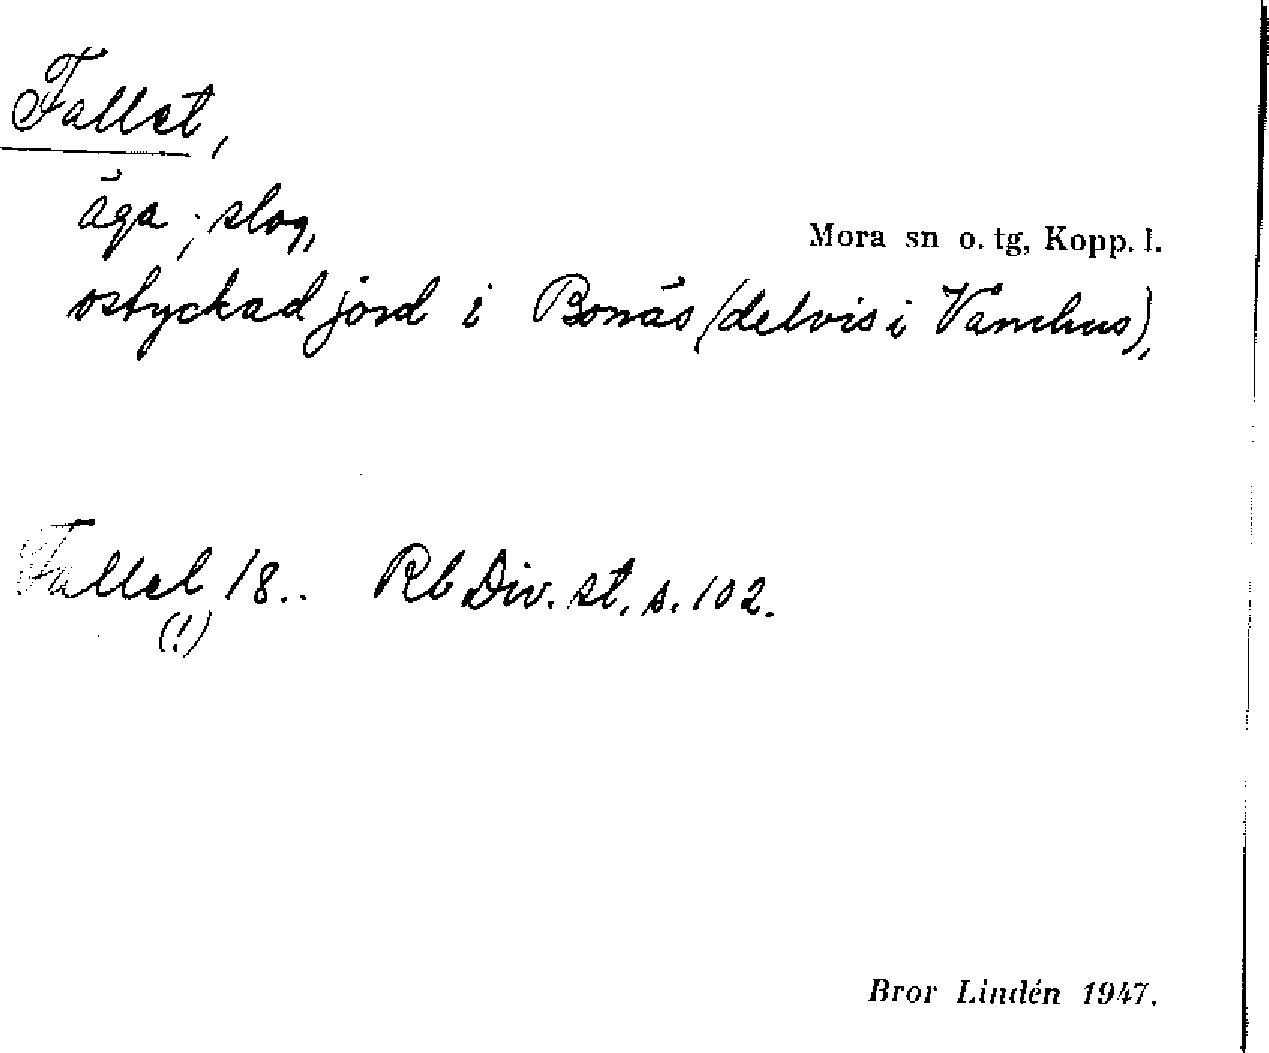 Fallet,
äga; slog,
Mora sn o. tg, Kopp. l.
ostyckad jord i Bonäs (delvis i Våmhus),
Fallel 18.. Rb Div. st. s. 102.
(!)
Bror Lindén 1947.